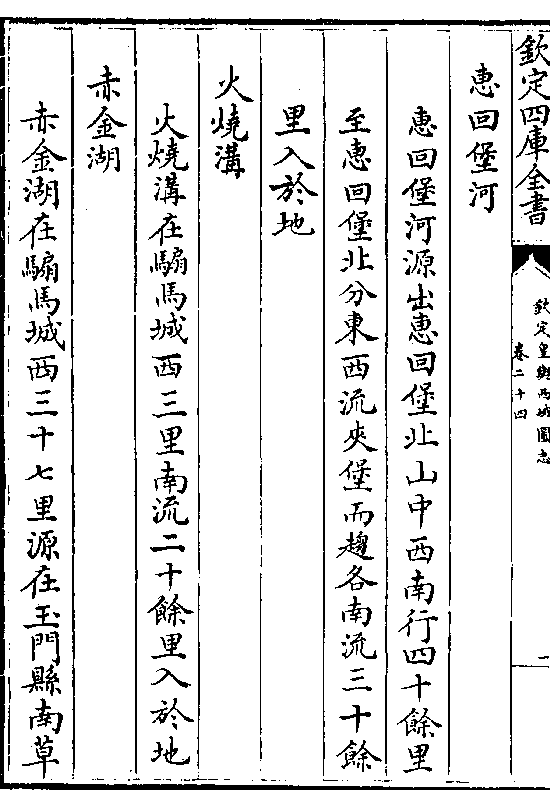 欽定四庫全書
欽定皇輿西域圖志
卷二十四
一
惠回堡河
惠回堡河源出惠回堡北山中西南行四十餘里
至惠回堡北分東西流夾堡而趨各南流三十餘
里入於地
火燒溝
火燒溝在騸馬城西三里南流二十餘里入於地
赤金湖
赤金湖在騸馬城西三十七里源在玉門縣南草